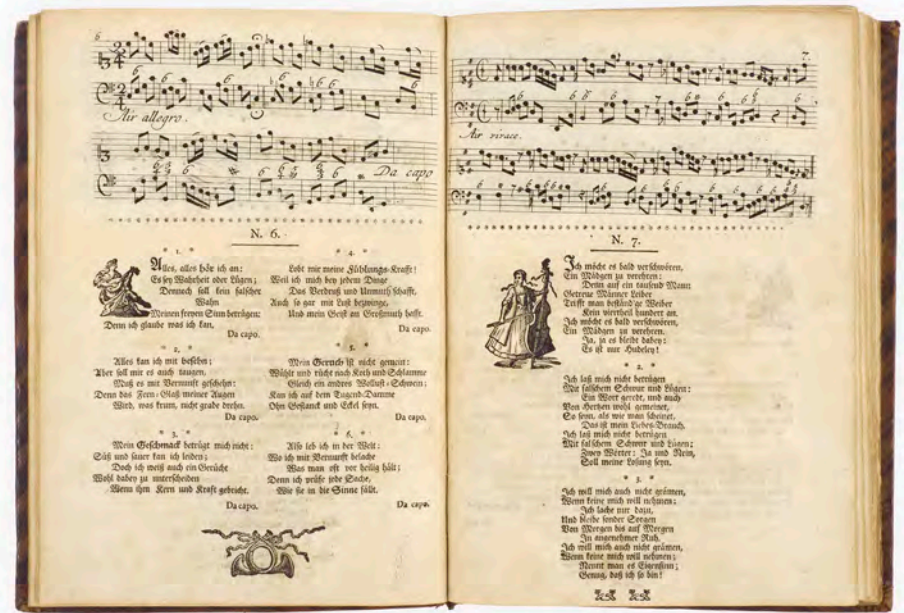 6
Air allegro.
Da capo
N. 6.
* 1. *
Alles, alles hör ich an:
Es sey Wahrheit oder Lügen;
Dennoch soll kein falscher
Wahn
Meinen freyen Sinn betrügen:
Denn ich glaube was ich kan.
Da capo.
* 2. *
Alles kan ich mit besehn;
Aber soll mir es auch taugen,
Muß es mit Vernunft geschehn:
Denn das Fern-Glaß meiner Augen
Wird, was krum, nicht grade drehn.
Da capo.
* 3. *
Mein Geschmack betrügt mich nicht:
Süß und sauer kan ich leiden;
Doch ich weiß auch ein Gerücht
Wohl dabey zu unterscheiden
Wenn ihm Kern und Kraft gebricht.
Da capo.
* 4. *
Lobt mir meine Fühlungs-Krafft!
Weil ich mich bey jedem Dinge
Das Verdruß und Unmuth schafft,
Auch so gar mit Lust bezwinge,
Und mein Geist an Großmuth hafft.
Da capo.
* 5. *
Mein Geruch ist nicht gemein:
Wühlt und rücht nach Koth und Schlamme
Gleich ein andres Wollust-Schwein;
Kan ich auf dem Tugend-Damme
Ohn Gestanck und Eckel seyn.
Da capo.
* 6. *
Also leb ich in der Welt:
Wo ich mit Vernunft belache
Was man oft vor heilig hält;
Denn ich prüfe jede Sache,
Wie sie in die Sinne fällt.
Da capo.
7
Air vivace.
N. 7.
Ich möcht es bald verschwören,
Ein Mädgen zu verehren:
Denn auf ein tausend Mann
Getreue Männer Leiber
Trifft man beständ'ge Weiber
Kein viertheil hundert an.
Ich möcht es bald verschwören,
Ein Mädgen zu verehren.
Ja, ja es bleibt dabey:
Es ist nur Hudeley!
* 2. *
Ich laß mich nicht betrügen
Mit falschem Schwur und Lügen:
Ein Wort geredt, und auch
Von Hertzen wohl gemeinet,
So seyn, als wie man scheinet,
Das ist mein Liebes-Brauch.
Ich laß mich nicht betrügen
Mit falschem Schwur und Lügen;
Zwey Wörter: Ja und Nein,
Soll meine Losung seyn.
* 3. *
Ich will mich auch nicht grämen,
Wenn keine mich will nehmen:
Ich lache nur dazu,
Und bleibe sonder Sorgen
Von Morgen bis auf Morgen
In angenehmer Ruh.
Ich will mich auch nicht grämen,
Wenn keine mich will nehmen;
Nennt man es Eigensinn;
Genug, daß ich so bin!